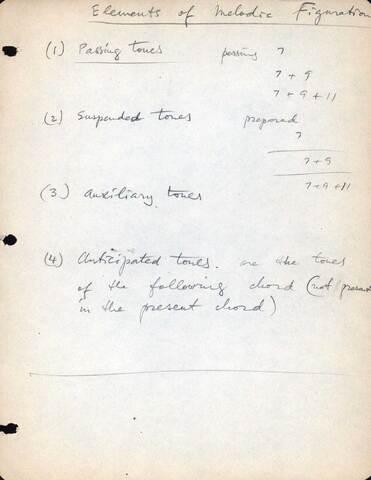 Elements of Melodic Figuration
(1) Passing tones passing 7
7 + 9
7 + 9 + 11
(2) Suspended tones prepared
7
7+9
7+9+11
(3) Auxiliary tones
(4) Anticipated tones. are the tones
of the following chord (not present
in the present chord)